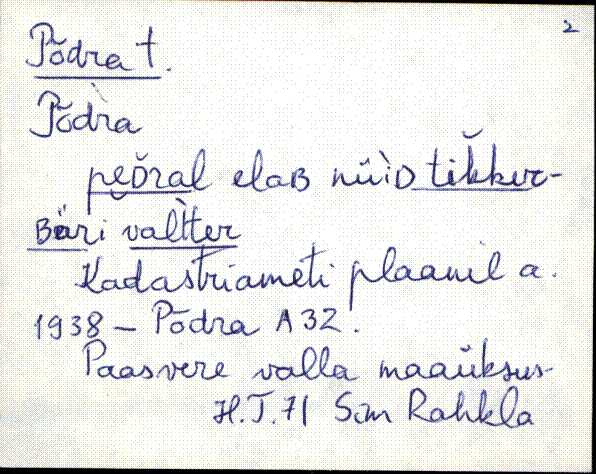 2
Põdra t.
Põ̀dra
pe̮Dral elaB nüìD tikker-
Bäri valìtter
Kadastriameti plaanil a.
1938 – Põdra A32.
Paasvere valla maaüksus-
H.T. 71 Sim Rahkla